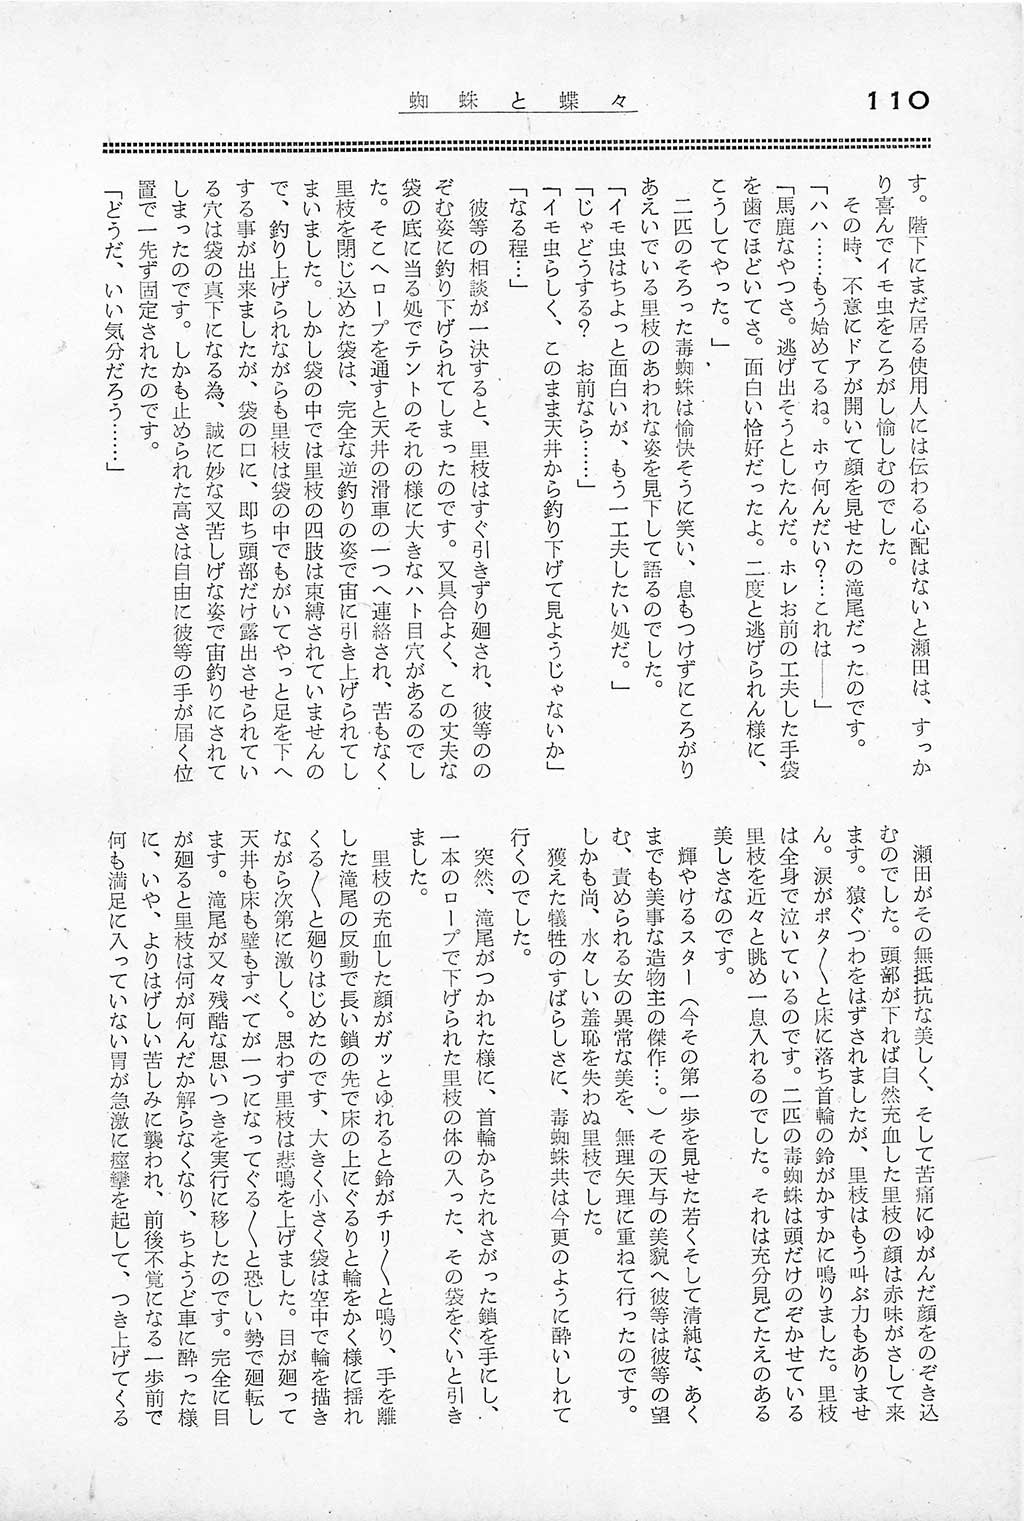 蜘蛛と蝶々
110
す。階下にまだ居る使用人には伝わる心配はないと瀬田は、すっか
り喜んでイモ虫をころがし愉しむのでした。
その時、不意にドアが開いて顔を見せたの滝尾だったのです。
「ハハ……もう始めてるね。ホウ何んだい？…これは――」
「馬鹿なやつさ。逃げ出そうとしたんだ。ホレお前の工夫した手袋
を歯でほどいてさ。面白い恰好だったよ。二度と逃げられん様に、
こうしてやった。」
二匹のそろった毒蜘蛛は愉快そうに笑い、息もつけずにころがり
あえいでいる里枝のあわれな姿を見下して語るのでした。
「イモ虫はちよっと面白いが、もう一工夫したい処だ。」
「じゃどうする？　お前なら……」
「イモ虫らしく、このまま天井から釣り下げて見ようじゃないか」
「なる程…」
彼等の相談が一決すると、里枝はすぐ引きずり廻され、彼等のの
ぞむ姿に釣り下げられてしまったのです。又具合よく、この丈夫な
袋の底に当る処でテントのそれの様に大きなハト目穴があるのでし
た。そこへロープを通すと天井の滑車の一つへ連絡され、苦もなく
里枝を閉じ込めた袋は、完全な逆釣りの姿で宙に引き上げられてし
まいました。しかし袋の中では里枝の四肢は束縛されていませんの
で、釣り上げられながらも里枝は袋の中でもがいてやっと足を下へ
する事が出来ましたが、袋の口に、即ち頭部だけ露出させられてい
る穴は袋の真下になる為、誠に妙な又苦しげな姿で宙釣りにされて
しまったのです。しかも止められた高さは自由に彼等の手が届く位
置で一先ず固定されたのです。
「どうだ、いい気分だろう……」
瀬田がその無抵抗な美しく、そして苦痛にゆがんだ顔をのぞき込
むのでした。頭部が下れば自然充血した里枝の顔は赤味がさして来
ます。猿ぐつわをはずされましたが、里枝はもう叫ぶ力もありませ
ん。涙がポタ〱と床に落ち首輪の鈴がかすかに鳴りました。里枝
は全身で泣いているのです。二匹の毒蜘蛛は頭だけのぞかせている
里枝を近々と眺め一息入れるのでした。それは充分見ごたえのある
美しさなのです。
輝やけるスター（今その第一歩を見せた若くそして清純な、あく
までも美事な造物主の傑作…。）その天与の美貌へ彼等は彼等の望
む、責められる女の異常な美を、無理矢理に重ねて行ったのです。
しかも尚、水々しい羞恥を失わぬ里枝でした。
獲えた犠牲のすばらしさに、毒蜘蛛共は今更のように酔いしれて
行くのでした。
突然、滝尾がつかれた様に、首輪からたれさがった鎖を手にし、
一本のロープで下げられた里枝の体の入った、その袋をぐいと引き
ました。
里枝の充血した顔がガッとゆれると鈴がチリ〱と鳴り、手を離
した滝尾の反動で長い鎖の先で床の上にぐるりと輪をかく様に揺れ
くる〱と廻りはじめたのです、大きく小さく袋は空中で輪を描き
ながら次第に激しく。思わず里枝は悲鳴を上げました。目が廻って
天井も床も壁もすべてが一つになってぐる〱と恐しい勢で廻転し
ます。滝尾が又々残酷な思いつきを実行に移したのです。完全に目
が廻ると里枝は何が何んだか解らなくなり、ちようど車に酔った様
に、いや、よりはげしい苦しみに襲われ、前後不覚になる一歩前で
何も満足に入っていない胃が急激に痙攣を起して、つき上げてくる